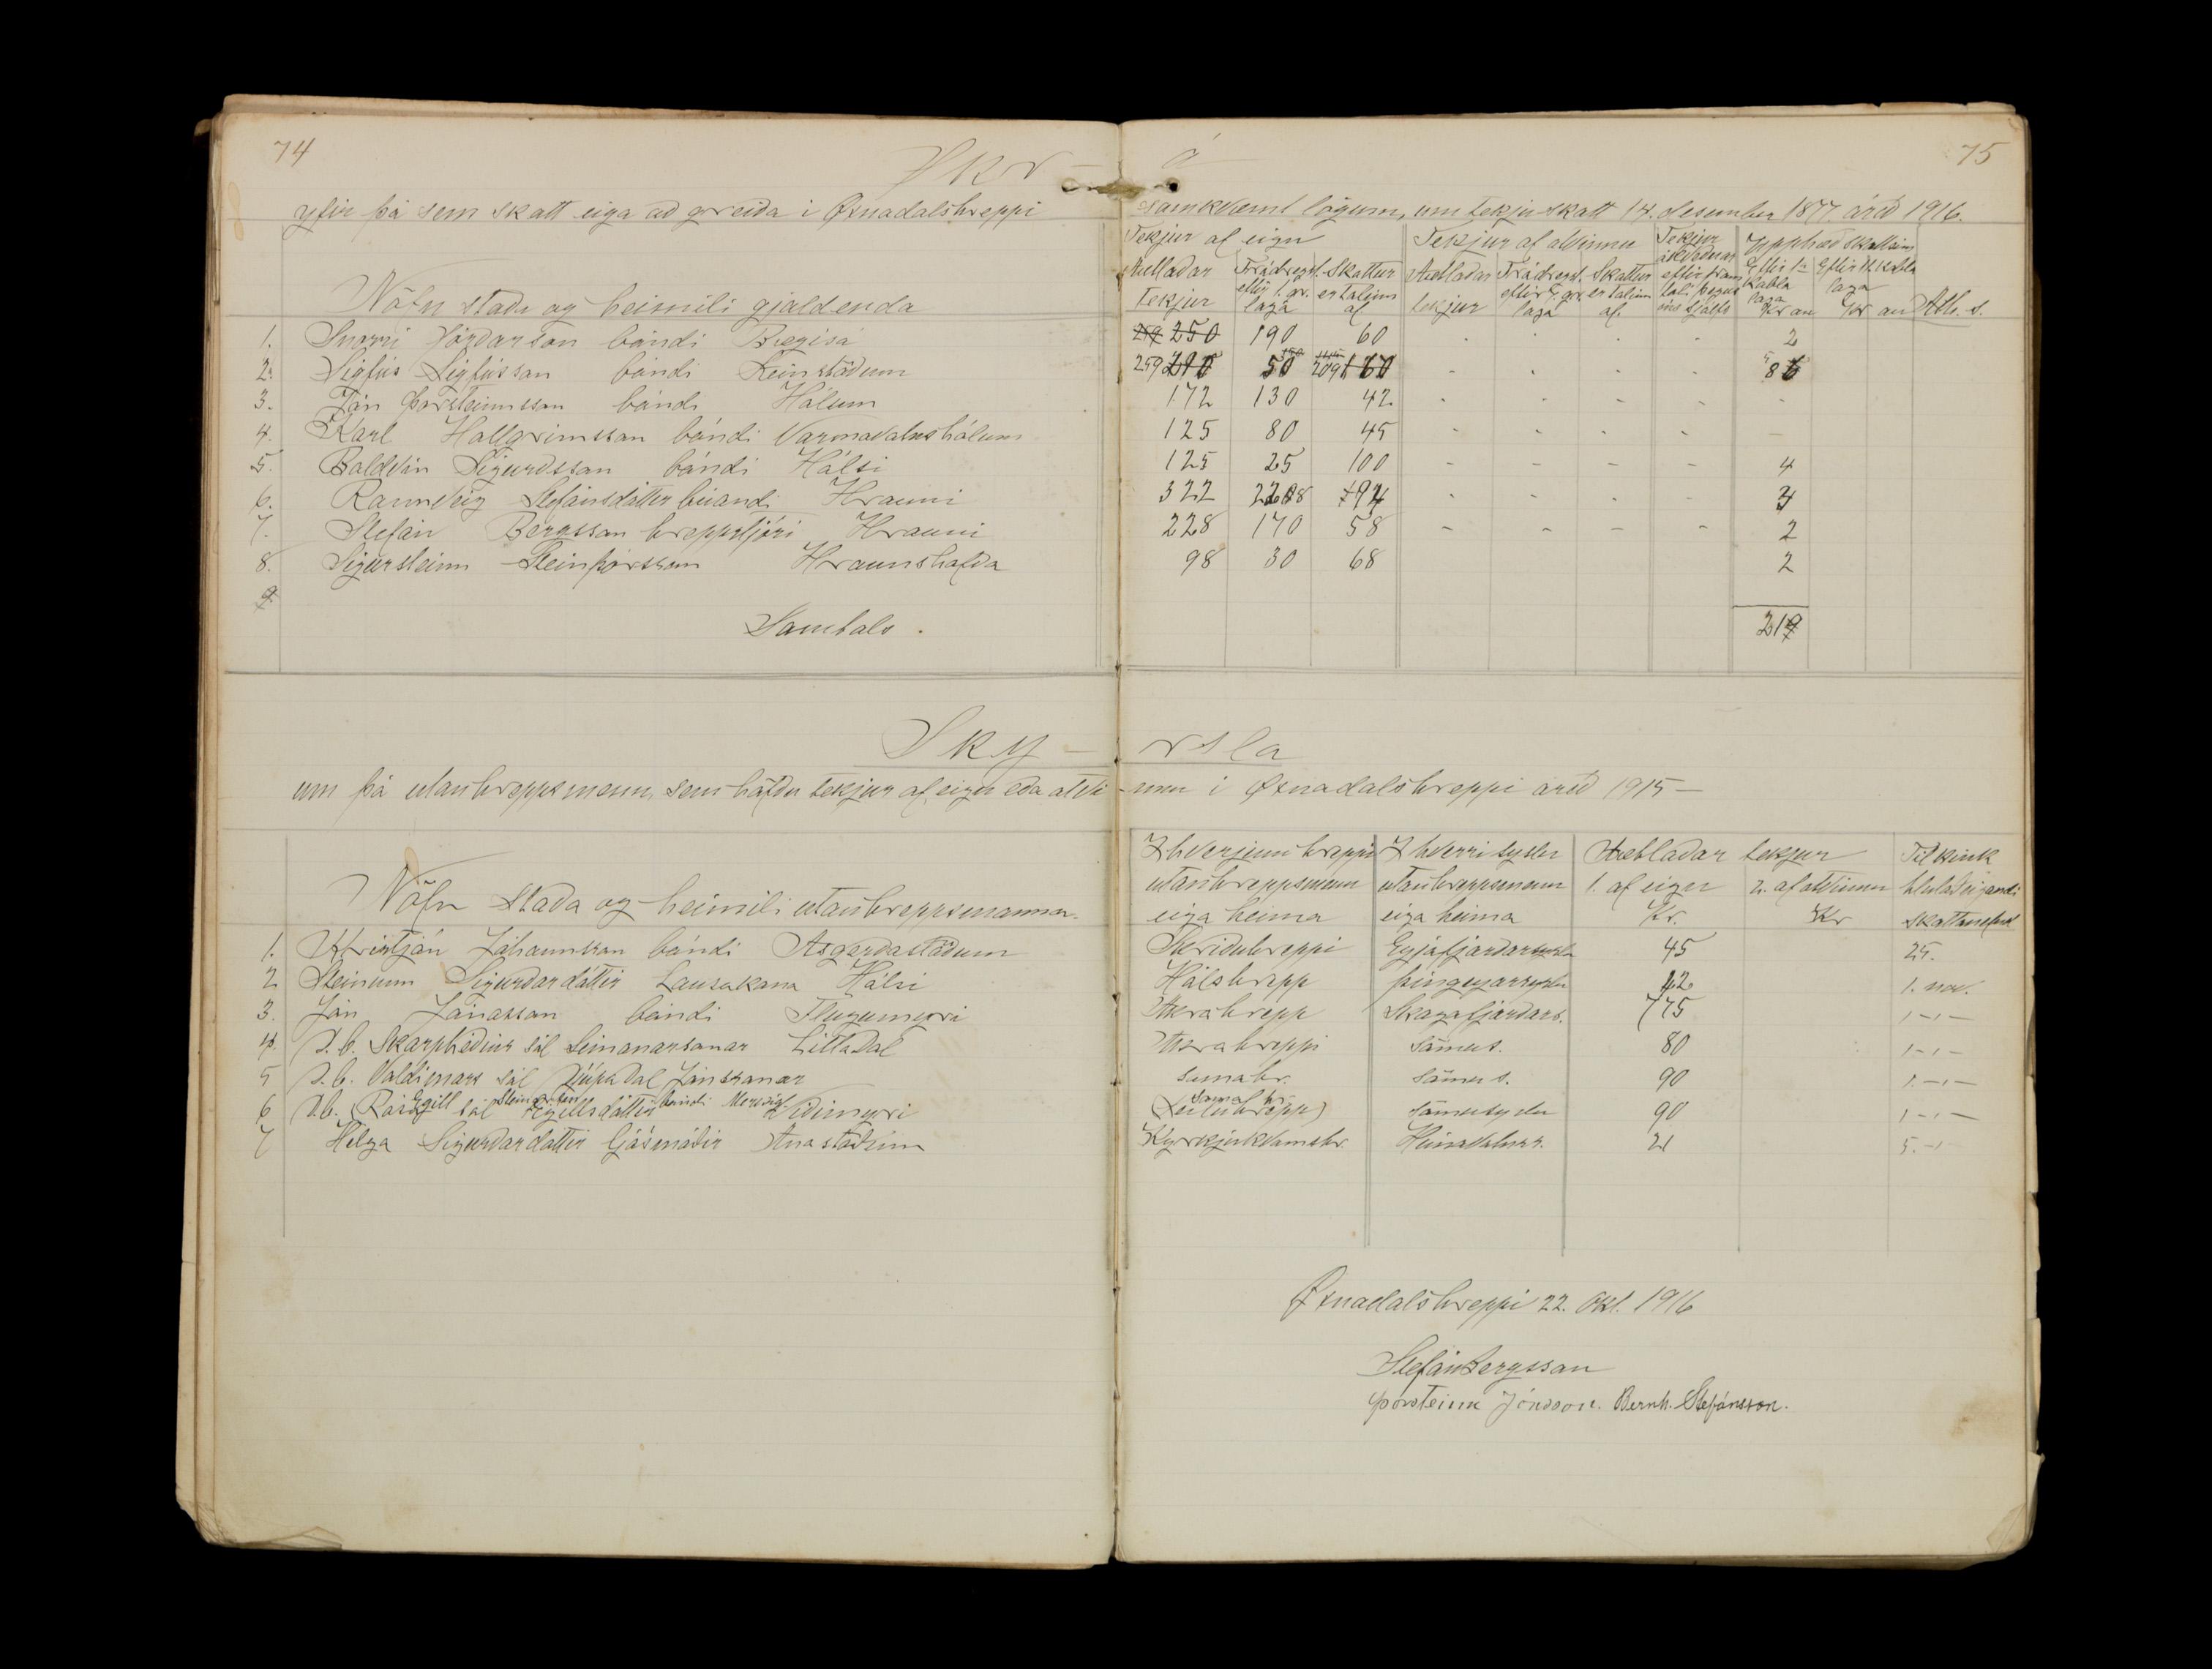 74
75
Skr - á
yfir þá sem skatt eiga að greiða i Øxnadalshreppi samkvæmt lögum, um tekjuskatt 14. desember 1877 árið 1916.
Nöfn staða og heimili gjaldenda
Tekjur af eign
Tekjur af atvinnu
Tekjur
Upphæð skattsins
Áætlaðar tekjur
Frádregst. eftir 1. gr. laga
Skattur er talinn af
Áætlaðar tekjur
Frádregst. eftir 7. gr. laga
Skattur er talinn af.
Kr au
Kr au
Ath. s.
1. Snorri Þórðarson bóndi Bægisá 259 250 190 60 - - - - 2
2. Sigfús Sigfússon bóndi Steinstöðum 259 210 50 209 160 - - - - 8 6
3. Jón Þorsteinsson bóndi Hólum 172 130 42 - - - - -
4. Karl Hallgrimsson bóndi Varmavatnshólum 125 80 45 - - - - -
5. Baldvin Sigurdsson bóndi Hálsi 125 25 100 - - - - 4
6. Rannveig Stefánsdóttir búandi Hrauni 322 228 94 - - - - 3
7. Stefán Bergsson hreppstjóri Hrauni 228 170 58 - - - - 2
8. Sigursteinn Steinþórsson Hraunshöfða 98 30 68 2
9.
Samtals. 21
Sky - rsla
um þá utanhreppsmenn, sem höfðu tekjur af eign eða atvi-nnu i Øxnadalshreppi árið 1915 -
Nöfn staða og heimili utanhreppsmanna.
I hverjum hreppi utanhreppsmenn eiga heima
I hverri sýslu utanhreppsmenn eiga heima
Áætlaðar tekjur
1. af eign Kr.
2. af atvinnu Kr
1. Kristján Jóhannsson bóndi Asgerdastöðum Skriduhreppi Eyjafjardarsyslu 45 25.
2 Steinunn Sigurdardóttir Lausakona Hálsi Hálshrepp þingeyarsyslu 42 1. nov.
3. Jón Jónasson bóndi Flugumyri Akrahrepp Skagafjardars. 775 1-1-
4. D.b. Skarphédins sál Simonarsonar Litladal Akrahreppi sömu s. 80 1-1-
5 D.b. Valdimars sál Djúpadal Jónssonar sama hr. sömu s. 90 1-1-
6 D.b. Rósu sál Egilsdóttir Vidimyri Egill bóndi sama hr. (Seiluhrepp) sömu syslu 90 1-1-
7 Helga Sigurdardottir ljósmódir Ánastöðum Kyrkjuhvamshr. Húnavatnss. 21 5.-1
Øxnadalshreppi 22. Okt. 1916
Stefán Bergsson
Þorsteinn Jónsson. Bernh. Stefánsson.